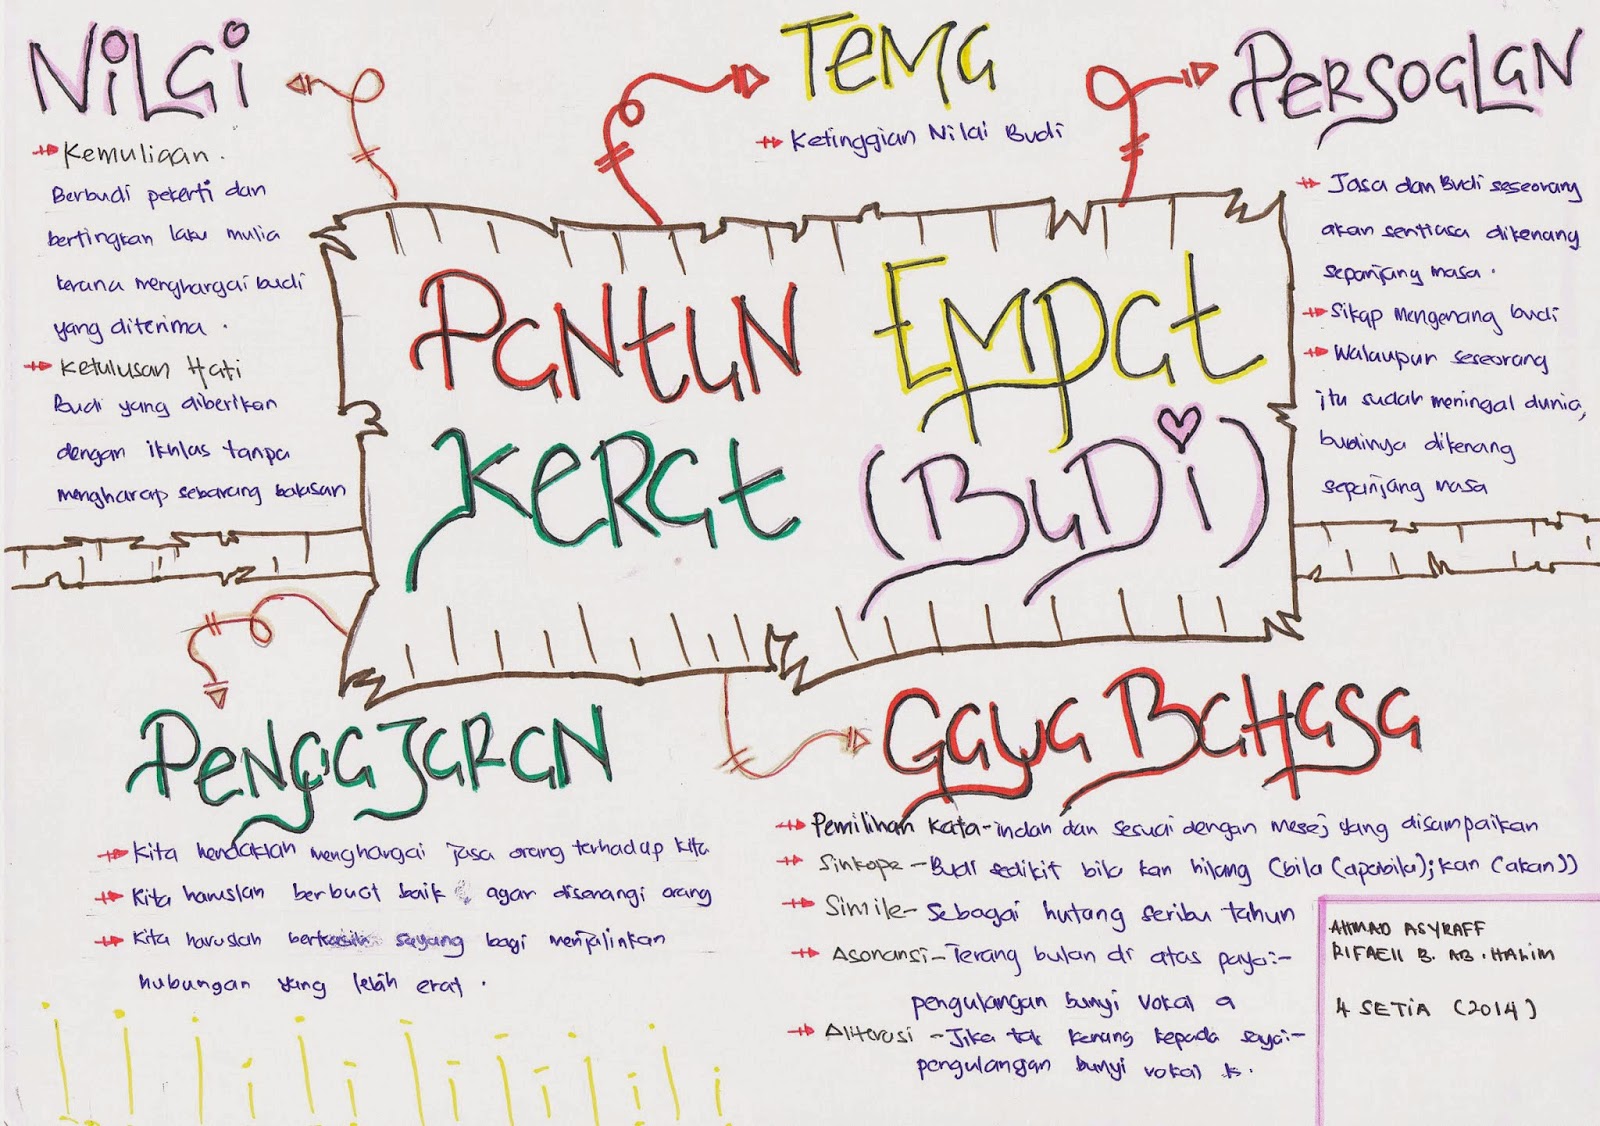 NiLai
Kemuliaan.
Berbudi pekerti dan
bertingkan laku mulia
kerana menghargai budi
yang diterima.
Ketulusan Hati
Budi yang diberikan
dengan ikhlas tanpa
mengharap sebarang balasan
TEMA
Ketinggian Nilai Budi
PERSOALAN
Jasa dan Budi seseorang
akan sentiasa dikenang
sepanjang masa.
Sikap mengenang budi
Walaupun seseorang
itu sudah meninggal dunia,
budinya dikenang
sepanjang masa
PANTUN EMPAT
KERAT (BUDi)
PENGAJARAN
Kita hendaklah menghargai jasa orang terhadap kita
Kita haruslah berbuat baik agar disenangi orang
Kita haruslah berkasih sayang bagi menjalinkan
hubungan yang lebih erat.
GAYA BAHASA
Pemilihan Kata - indah dan sesuai dengan mesej yang disampaikan
Sinkope - Budi sedikit bila kan hilang (bila (apabila); kan (akan))
Simile - Sebagai hutang seribu tahun
Asonansi - Terang bulan di atas paya:-
pengulangan bunyi vokal a
Aliterasi - Jika tak kenang kepada saya:-
pengulangan bunyi vokal k.
AHMAD ASYRAFF
RIFAEII B. AB. HALIM
4 SETIA (2014)